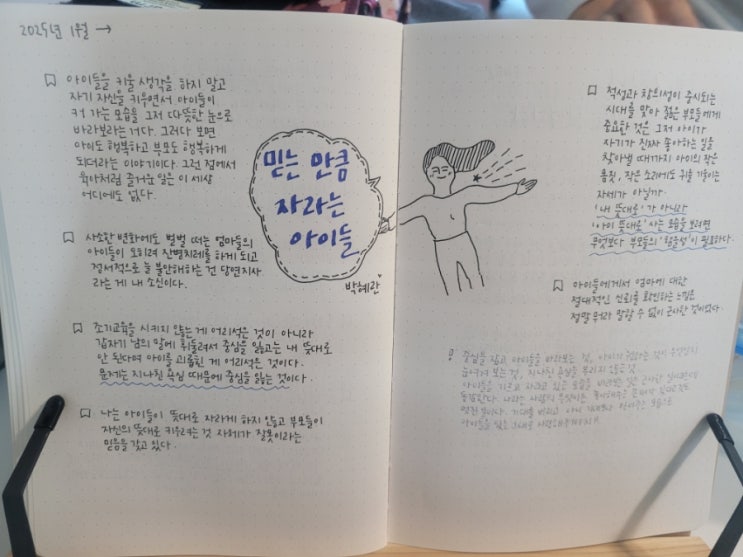 2025년 1월 →
아이들을 키울 생각을 하지 말고
자기 자신을 키우면서 아이들이
커 가는 모습을 그저 따뜻한 눈으로
바라보라는 거다. 그러다 보면
아이도 행복하고 부모도 행복하게
되더라는 이야기이다. 그런 점에서
육아처럼 즐거운 일은 이 세상
어디에도 없다.
사소한 변화에도 벌벌 떠는 엄마들의
아이들이 오히려 잔병치레를 하게 되고
정서적으로 늘 불안해하는 건 당연지사
라는 게 내 소신이다.
조기교육을 시키지 않는 게 어리석은 것이 아니라
갑자기 남의 말에 휘둘려서 중심을 잃고는 내 뜻대로
안 된다며 아이를 괴롭힌 게 어리석은 것이다.
문제는 지나친 욕심 때문에 중심을 잃는 것이다.
나는 아이들이 뜻대로 자라게 하지 않고 부모들이
자신의 뜻대로 키우려는 것 자체가 잘못이라는
믿음을 갖고 있다.
믿는 만큼
자라는
아이들
박혜란
적성과 창의성이 중시되는
시대를 맞아 젊은 부모들에게
중요한 것은 그저 아이가
자기가 진짜 좋아하는 일을
찾아낼 때까지 아이의 작은
몸짓, 작은 소리에도 귀를 기울이는
자세가 아닐까.
'내 뜻대로'가 아니라
'아이 뜻대로' 사는 모습을 보려면
무엇보다 부모들의 '          '이 필요하다.
아이들에게서 엄마에 대한
절대적인 신뢰를 확인하는 느낌은
정말 뭐라 말할 수 없이 근사한 것이었다.
중심을 잡고 아이들을 바라보는 것, 아이의
지나친 욕심을 부리지 않는 것